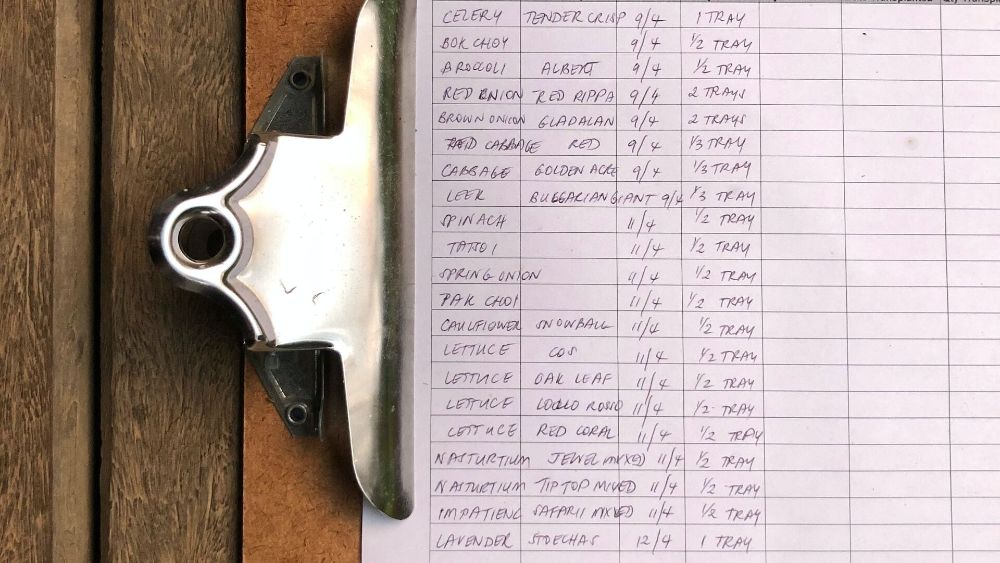 Transplanted Qty Transpl
CELERY TENDER CRISP 9/4 1 TRAY
BOK CHOY 9/4 1/2 TRAY
BROCCOLI ALBERT 9/4 1/2 TRAY
RED ONION RED RIPPA 9/4 2 TRAYS
BROWN ONION GLADALAN 9/4 2 TRAYS
RED CABBAGE RED 9/4 1/3 TRAY
CABBAGE GOLDEN ACRE 9/4 1/3 TRAY
LEEK BULGARIAN GIANT 9/4 1/3 TRAY
SPINACH 11/4 1/2 TRAY
TATSOI 11/4 1/2 TRAY
SPRING ONION 11/4 1/2 TRAY
PAK CHOI 11/4 1/2 TRAY
CAULIFLOWER SNOWBALL 11/4 1/2 TRAY
LETTUCE COS 11/4 1/2 TRAY
LETTUCE OAK LEAF 11/4 1/2 TRAY
LETTUCE LOLLO ROSSO 11/4 1/2 TRAY
LETTUCE RED CORAL 11/4 1/2 TRAY
NASTURTIUM JEWEL MIXED 11/4 1/2 TRAY
NASTURTIUM TIP TOP MIXED 11/4 1/2 TRAY
IMPATIENC SAFARII MIXED 11/4 1/2 TRAY
LAVENDER STOECHAS 12/4 1 TRAY